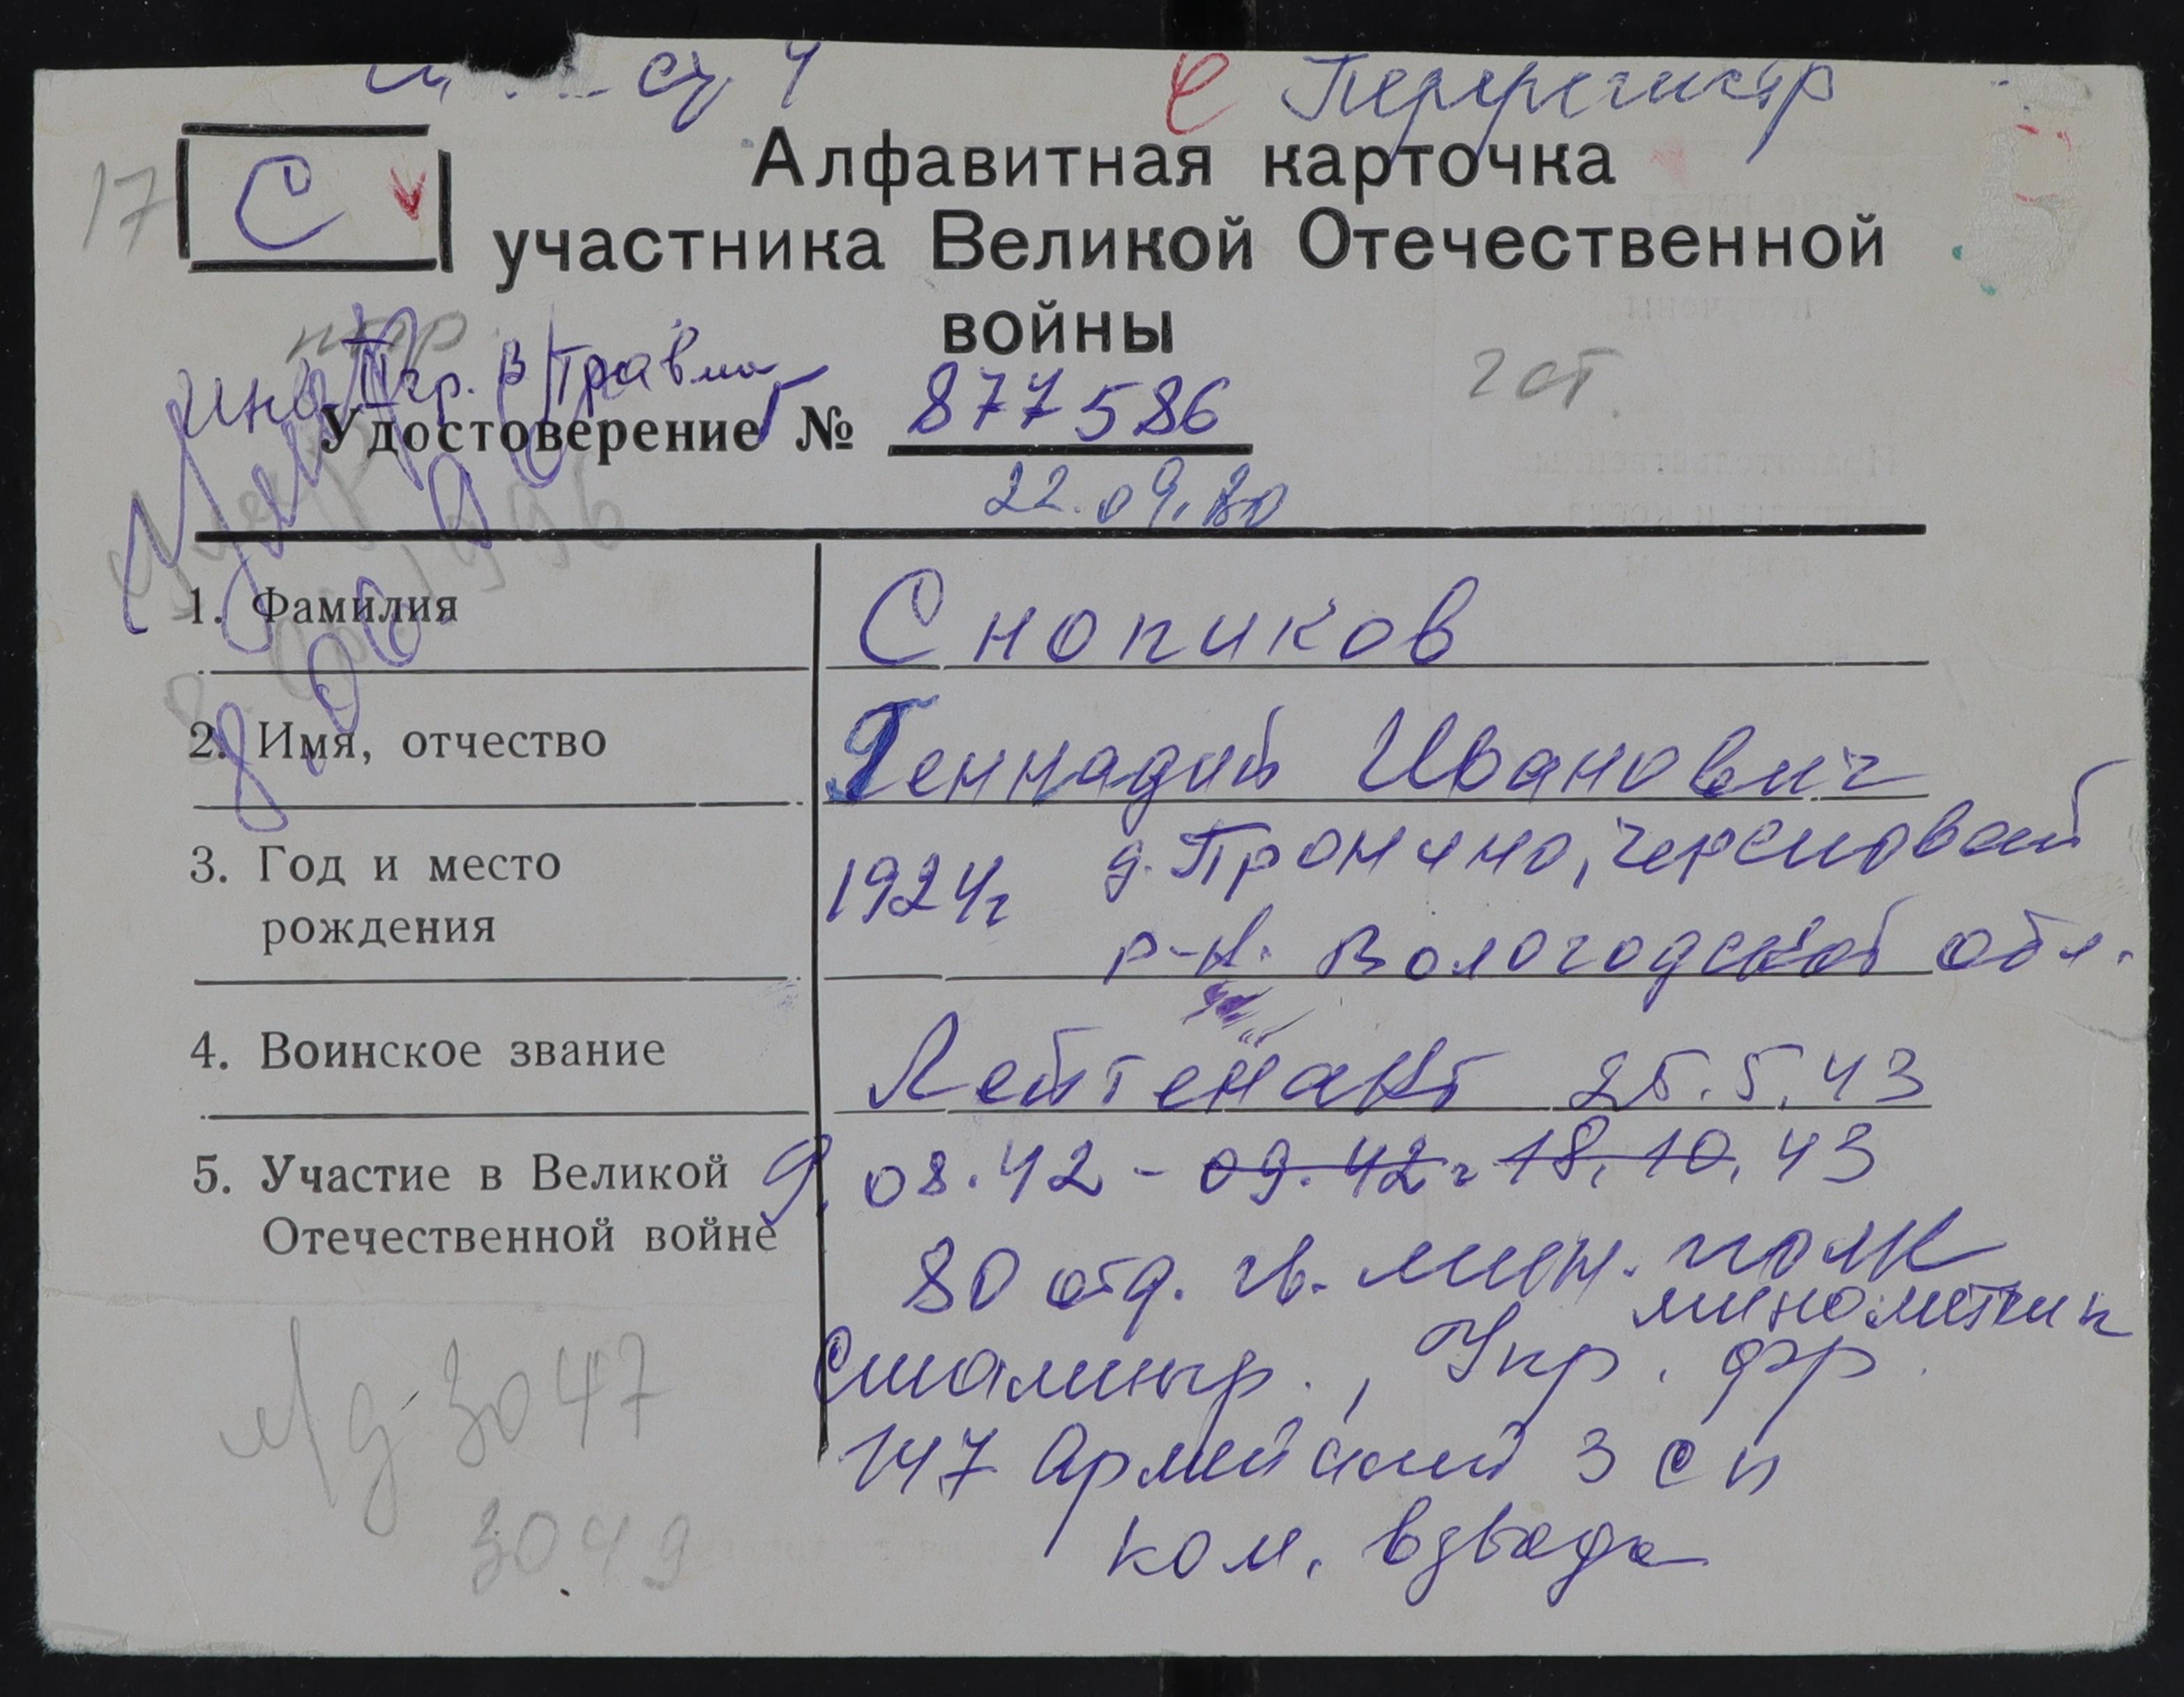 Перерегистр
17
С
Алфавитная карточка
участника Великой Отечественной
войны
2 ст.
инв II гр. в/травма
Удостоверение № 877586
22.09.80
Умер
8.06.
1. Фамилия Снопиков
2. Имя, отчество Геннадий Иванович
3. Год и место рождения 1924г д. Пронино, Череповецкий
р-н. Вологодской обл.
4. Воинское звание Лейтенант 25.5.43
5. Участие в Великой Отечественной войне 9.08.42 - 09.42г 18.10.43
80 отд. гв. мин. полк
минометчик
Сталингр., Укр. фр.
147 Армейский ЗСП
ком. взвода
Мд-3047
3049